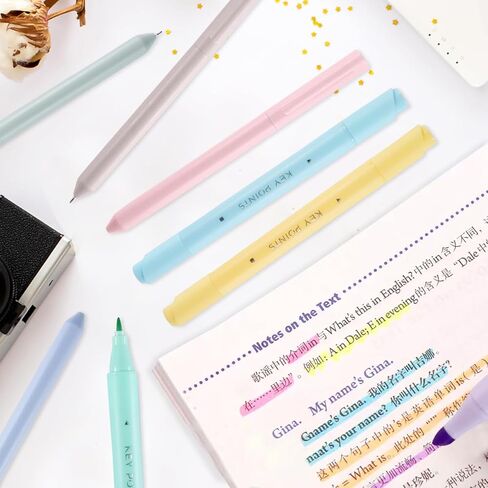 KEY POINTS
KEY POINTS
KEY PO
Notes on the Text
歌谣中的介词in与What's this in English?中的in含义不同，
在……里边”。例如: A in Dale; E in evening的含义是“Dale中
Gina. My name's Gina.
Gname's Gina. 我的名字叫吉娜。
naat's your name? 你叫什么名字?
这两个句子中的's是英语单词is(是)
= What is。此处的
更加流畅，简
种说法，